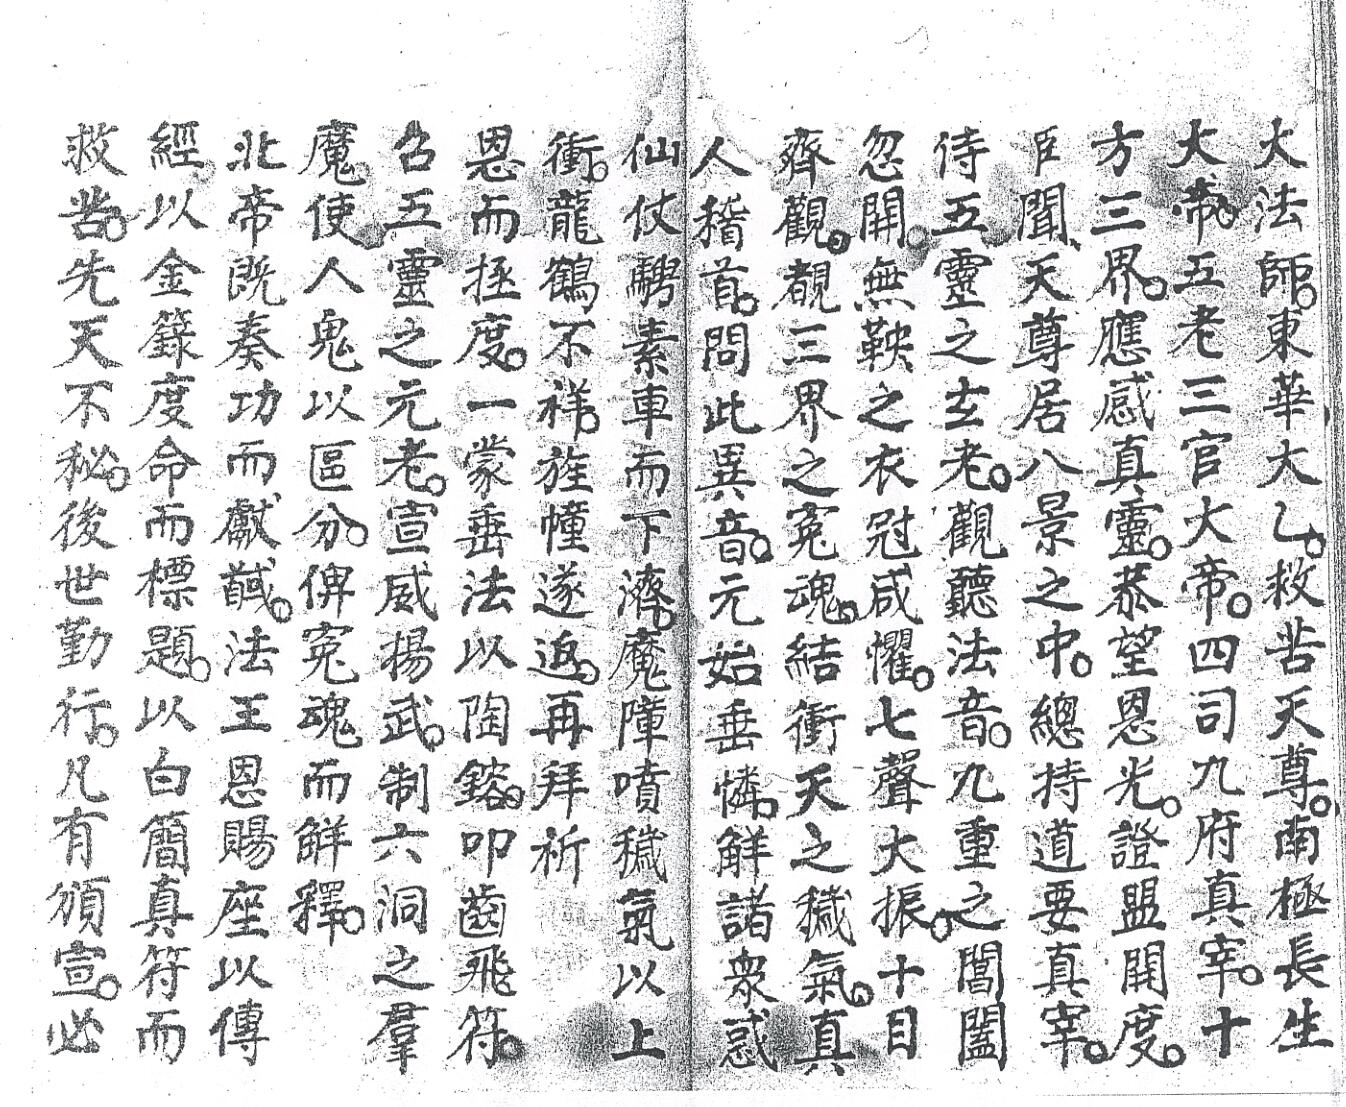 大法師。東華大乙。救苦天尊。南極長生
大帝。五老三官大帝。四司九府真宰。十
方三界。應感真靈。恭望恩光。證盟開度。
臣聞、天尊居八景之中。總持道要真宰。
侍五靈之玄老。觀聽法音。九重之閶闔
忽開。無鞅之衣冠咸懼。七聲大振。十目
齊觀。覩三界之冤魂。結衝天之穢氣。真
人稽首。問此異音。元始垂憐。解諸衆惑
仙仗驂素車而下濟。魔障噴穢氣以上
衝。龍鶴不祥。旌幢遂返。再拜祈
恩而拯度。一蒙垂法以陶鎔。叩齒飛符。
召五靈之元老。宣威揚武。制六洞之羣
魔。使人鬼以區分。俾冤魂而解釋。
北帝既奏功而獻馘。法王恩賜座以傳
經。以金籙度命而標題。以白簡真符而
救苦。先天不秘。後世勤行。凡有頒宣。必